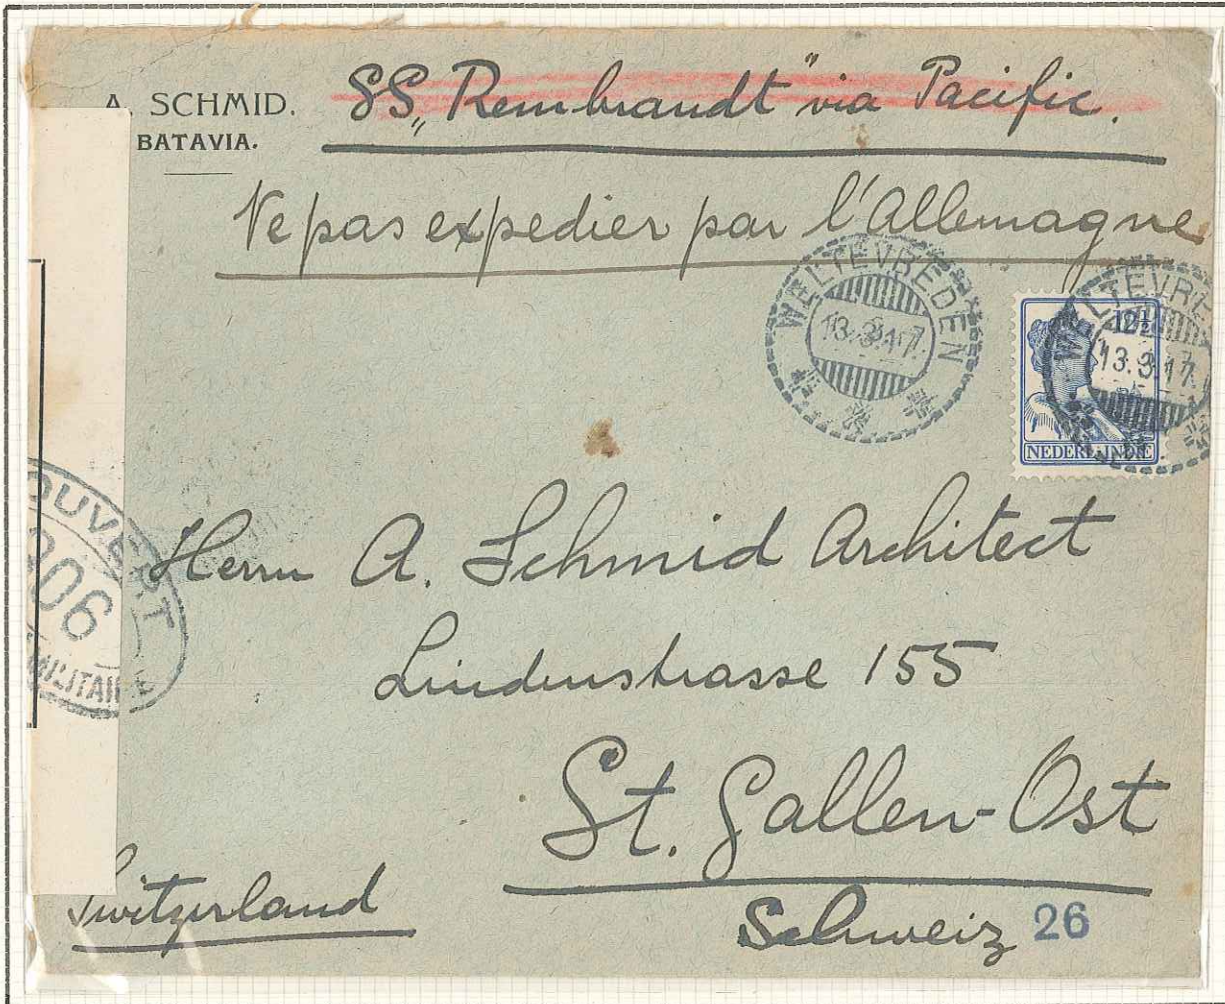 A. SCHMID.
BATAVIA.
SS „Rembrandt" via Pacific.
Ne pas expedier par l'Allemagne
WELTEVREDEN
13.3.17.
12½
NEDERL.INDIË
WELTEVRE
13.3.17.
OUVERT
206
MILITAIRE
Herrn A. Schmid Architect
Lindenstrasse 155
St. Gallen-Ost
Schweiz 26
Switzerland